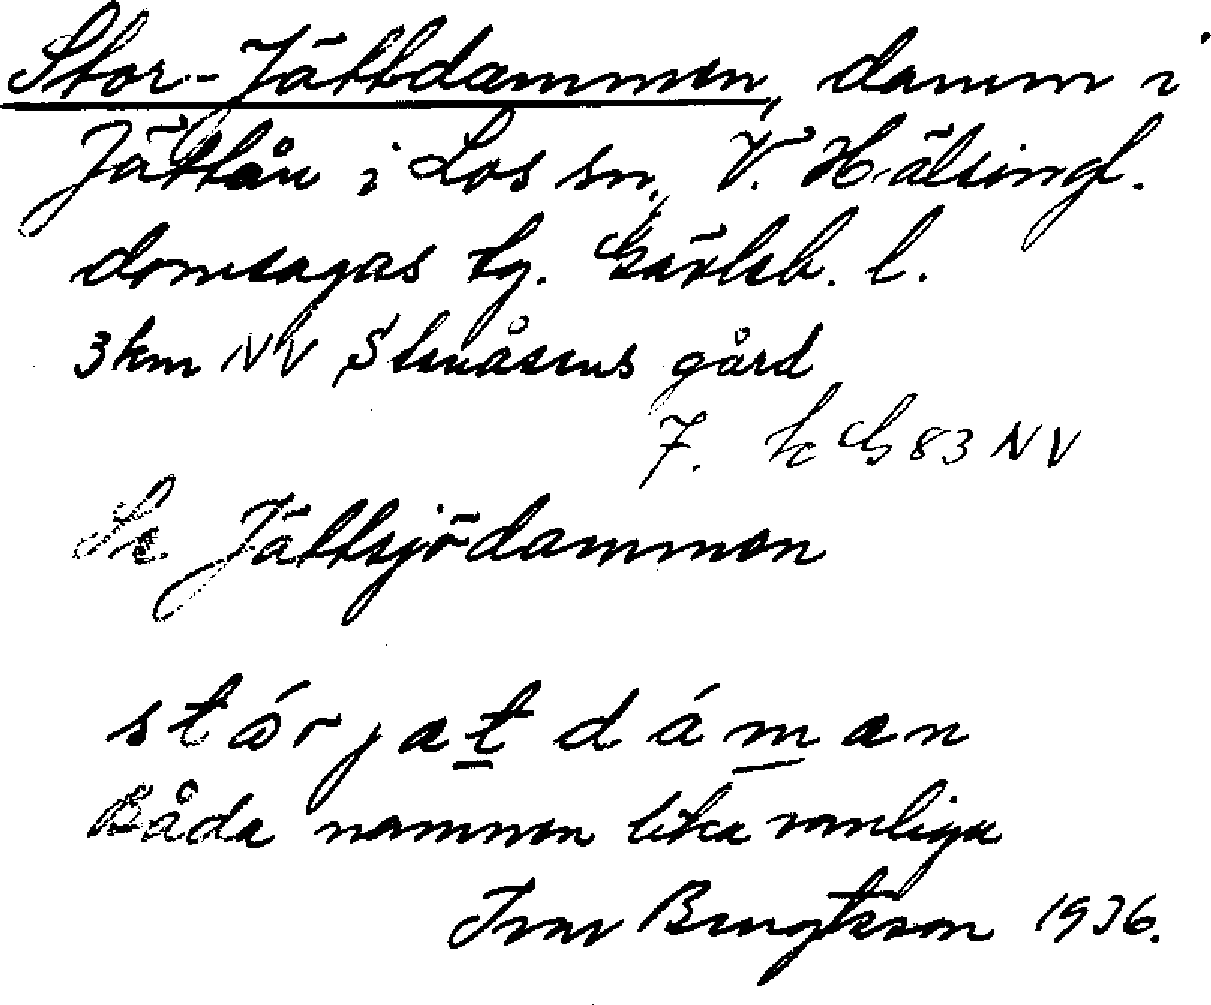 Stor-Jättdammen, damm i
Jättån i Los sn, V. Hälsingl.
domsagas tg. Gävleb. l.
3 km NV Stenåsens gård
7. kG 83 NV
Se Jättsjödammen
stórjatdáman
Båda namnen lika vanliga
Ivar Bengtsson 1936.